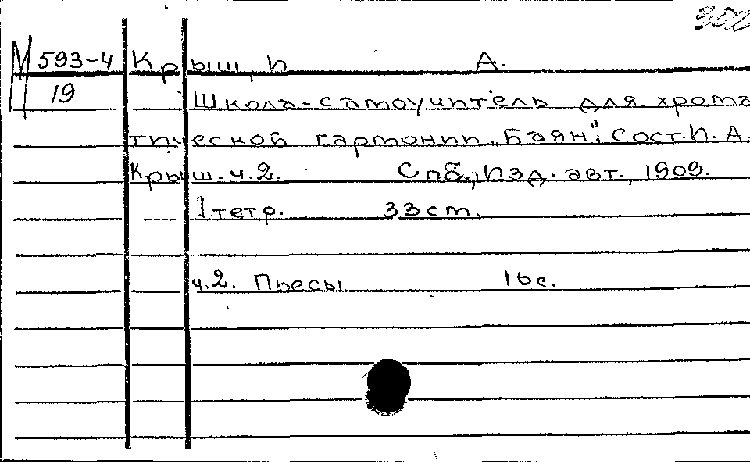 302
М 593-4
19
Крыш, П. А.
Школа-самоучитель для хрома
тической гармонии „Баян". Сост. П. А.
Крыш. ч.2. Спб., Изд. авт., 1909.
1 тетр. 33 cm.
ч.2. Пьесы 16 с.